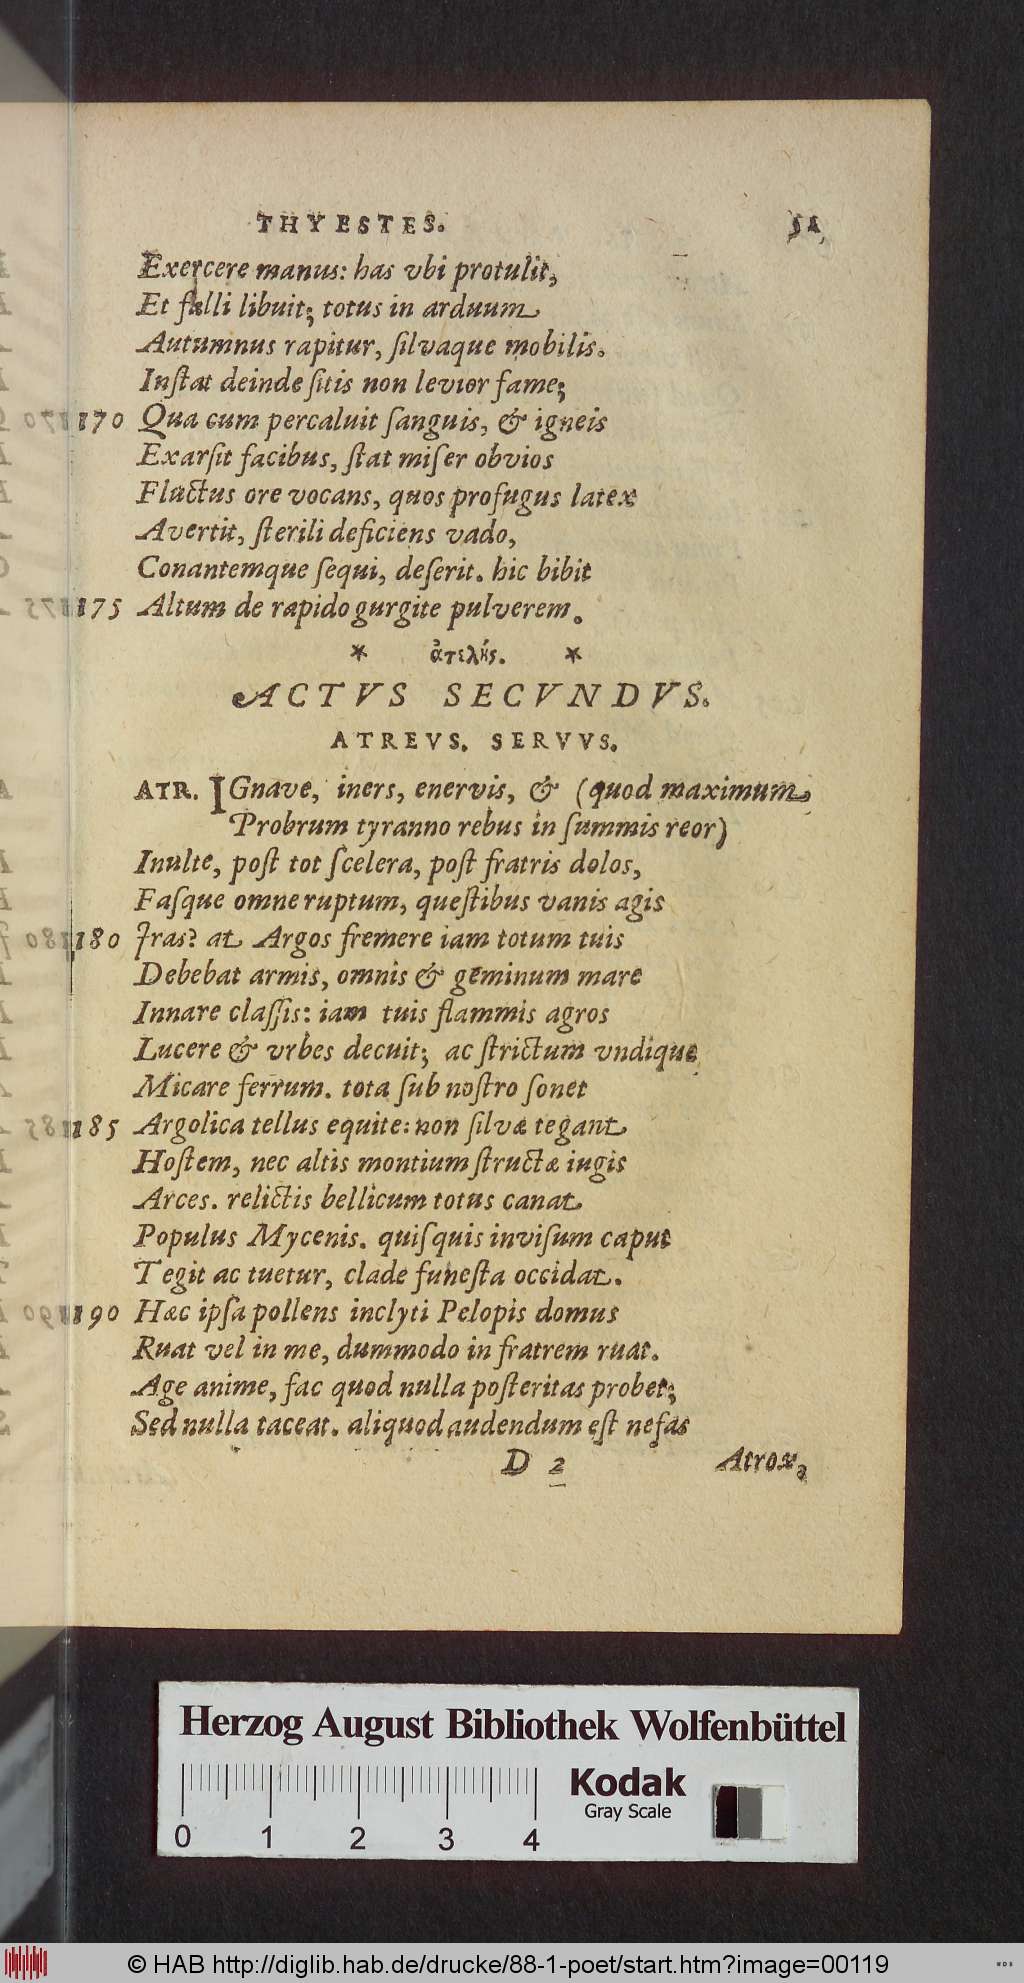 THYESTES. 51
Exercere manus: has vbi protulit,
Et falli libuit; totus in arduum
Autumnus rapitur, ſilvaque mobilis.
Inſtat deinde ſitis non levior fame;
170 Qua cum percaluit ſanguis, & igneis
Exarſit facibus, ſtat miſer obvios
Fluctus ore vocans, quos profugus latex
Avertit, ſterili deficiens vado,
Conantemque ſequi, deſerit. hic bibit
175 Altum de rapido gurgite pulverem.
* ἀτελής. *
ACTVS SECVNDVS.
ATREVS. SERVVS.
ATR. IGnave, iners, enervis, & (quod maximum
Probrum tyranno rebus in ſummis reor)
Inulte, poſt tot ſcelera, poſt fratris dolos,
Faſque omne ruptum, queſtibus vanis agis
180 Iras? at Argos fremere iam totum tuis
Debebat armis, omnis & geminum mare
Innare claſſis: iam tuis flammis agros
Lucere & vrbes decuit; ac ſtrictum vndique
Micare ferrum. tota ſub noſtro ſonet
185 Argolica tellus equite: non ſilvæ tegant
Hoſtem, nec altis montium ſtructæ iugis
Arces. relictis bellicum totus canat
Populus Mycenis. quiſquis inviſum caput
Tegit ac tuetur, clade funeſta occidat.
190 Hæc ipſa pollens inclyti Pelopis domus
Ruat vel in me, dummodo in fratrem ruat.
Age anime, fac quod nulla poſteritas probet;
Sed nulla taceat. aliquod audendum eſt nefas
D 2 Atrox,
Herzog August Bibliothek Wolfenbüttel
Kodak
Gray Scale
0 1 2 3 4
© HAB http://diglib.hab.de/drucke/88-1-poet/start.htm?image=00119